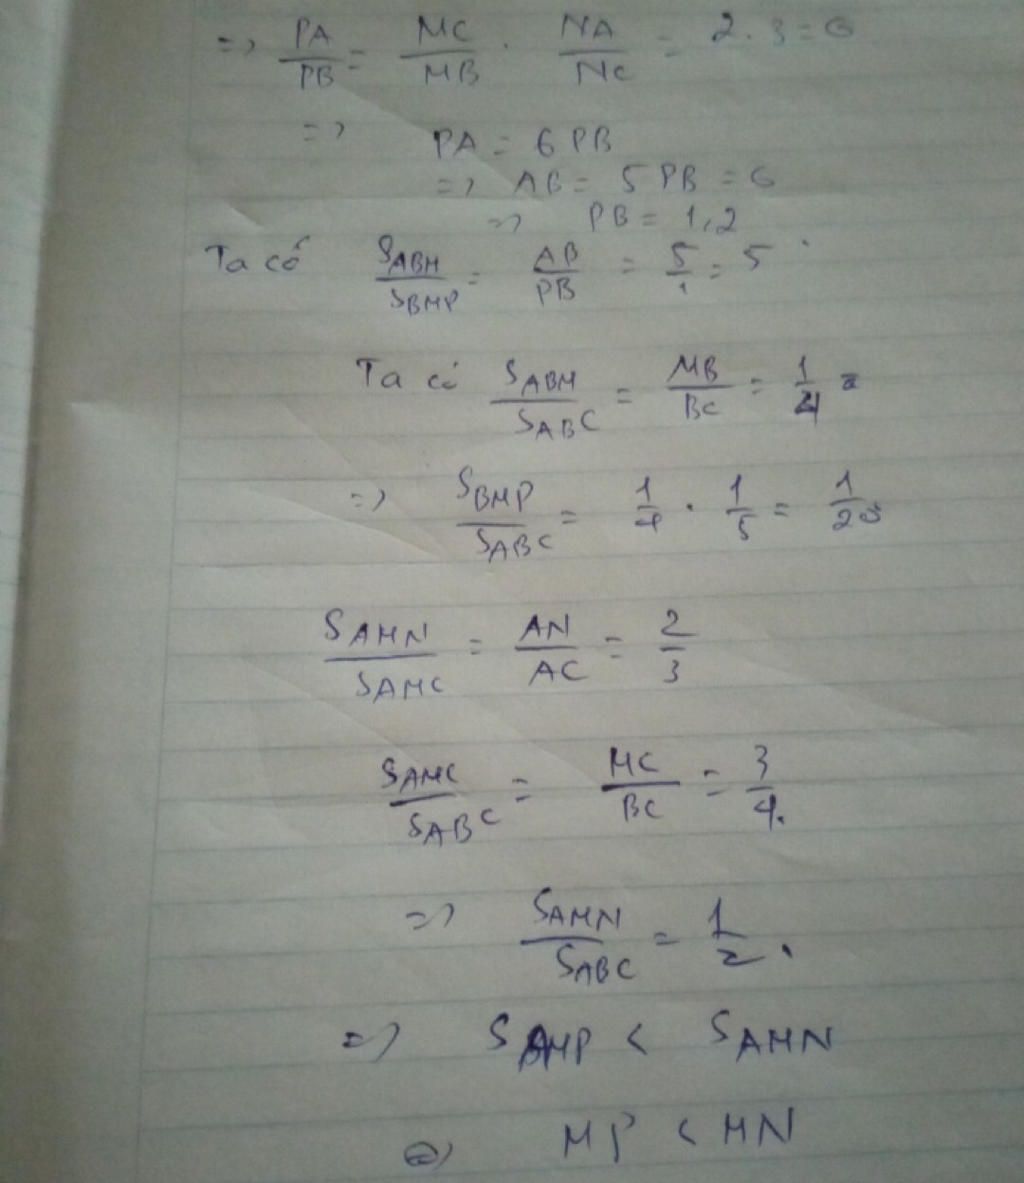 => PA/PB = MC/MB . NA/NC = 2.3=6
=> PA = 6 PB
=> AB = 5 PB = 6
=> PB = 1,2
Ta có S_ABM/S_BMP = AB/PB = 5/1 = 5
Ta có S_ABM/S_ABC = MB/BC = 1/4
=> S_BMP/S_ABC = 1/4 . 1/5 = 1/20
S_AMN/S_AMC = AN/AC = 2/3
S_AMC/S_ABC = MC/BC = 3/4.
=> S_AMN/S_ABC = 1/2.
=> S_BMP < S_AMN
=> MP < MN